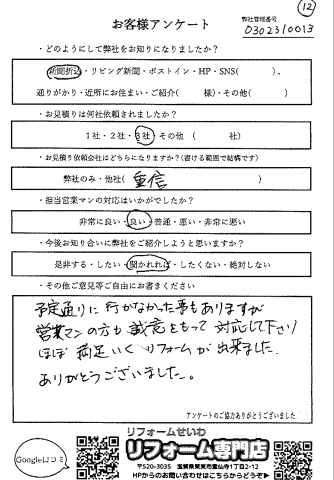 ⑫
お客様アンケート
弊社管理番号
0302310013
・どのようにして弊社をお知りになりましたか？
新聞折込・リビング新聞・ポストイン・HP・SNS( )、
通りがかり・近所にお住まい・ご紹介( 様)・その他( )
・お見積りは何社依頼されましたか？
1社・2社・3社・その他 ( 社)
・お見積り依頼会社はどちらになりますか？(書ける範囲で結構です)
弊社のみ・他社( 重信 )
・担当営業マンの対応はいかがでしたか？
非常に良い・良い・普通・悪い・非常に悪い
・今後お知り合いに弊社をご紹介しようと思いますか？
是非する・したい・聞かれれば・したくない・絶対しない
・その他ご意見等ご自由にお書きください
予定通りに行かなかった事もありますが
営業マンの方も誠意をもって対応して下さり
ほぼ満足いくリフォームが出来ました。
ありがとうございました。
アンケートのご協力ありがとうございました
Google口コミ
リフォームせいわ
リフォーム専門店
〒520-3035 滋賀県栗東市霊仙寺1丁目2-12
HPからのお問い合わせはこちらからどうぞ